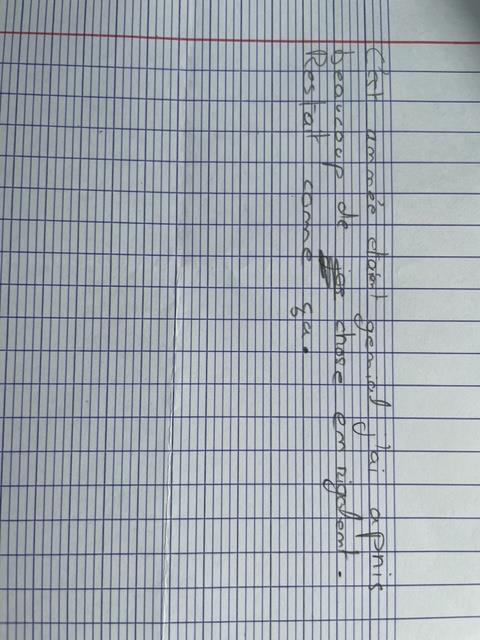 C'est année etaient genial j'ai apris
beaucoup de chose en rigolent.
Restait comme ça.